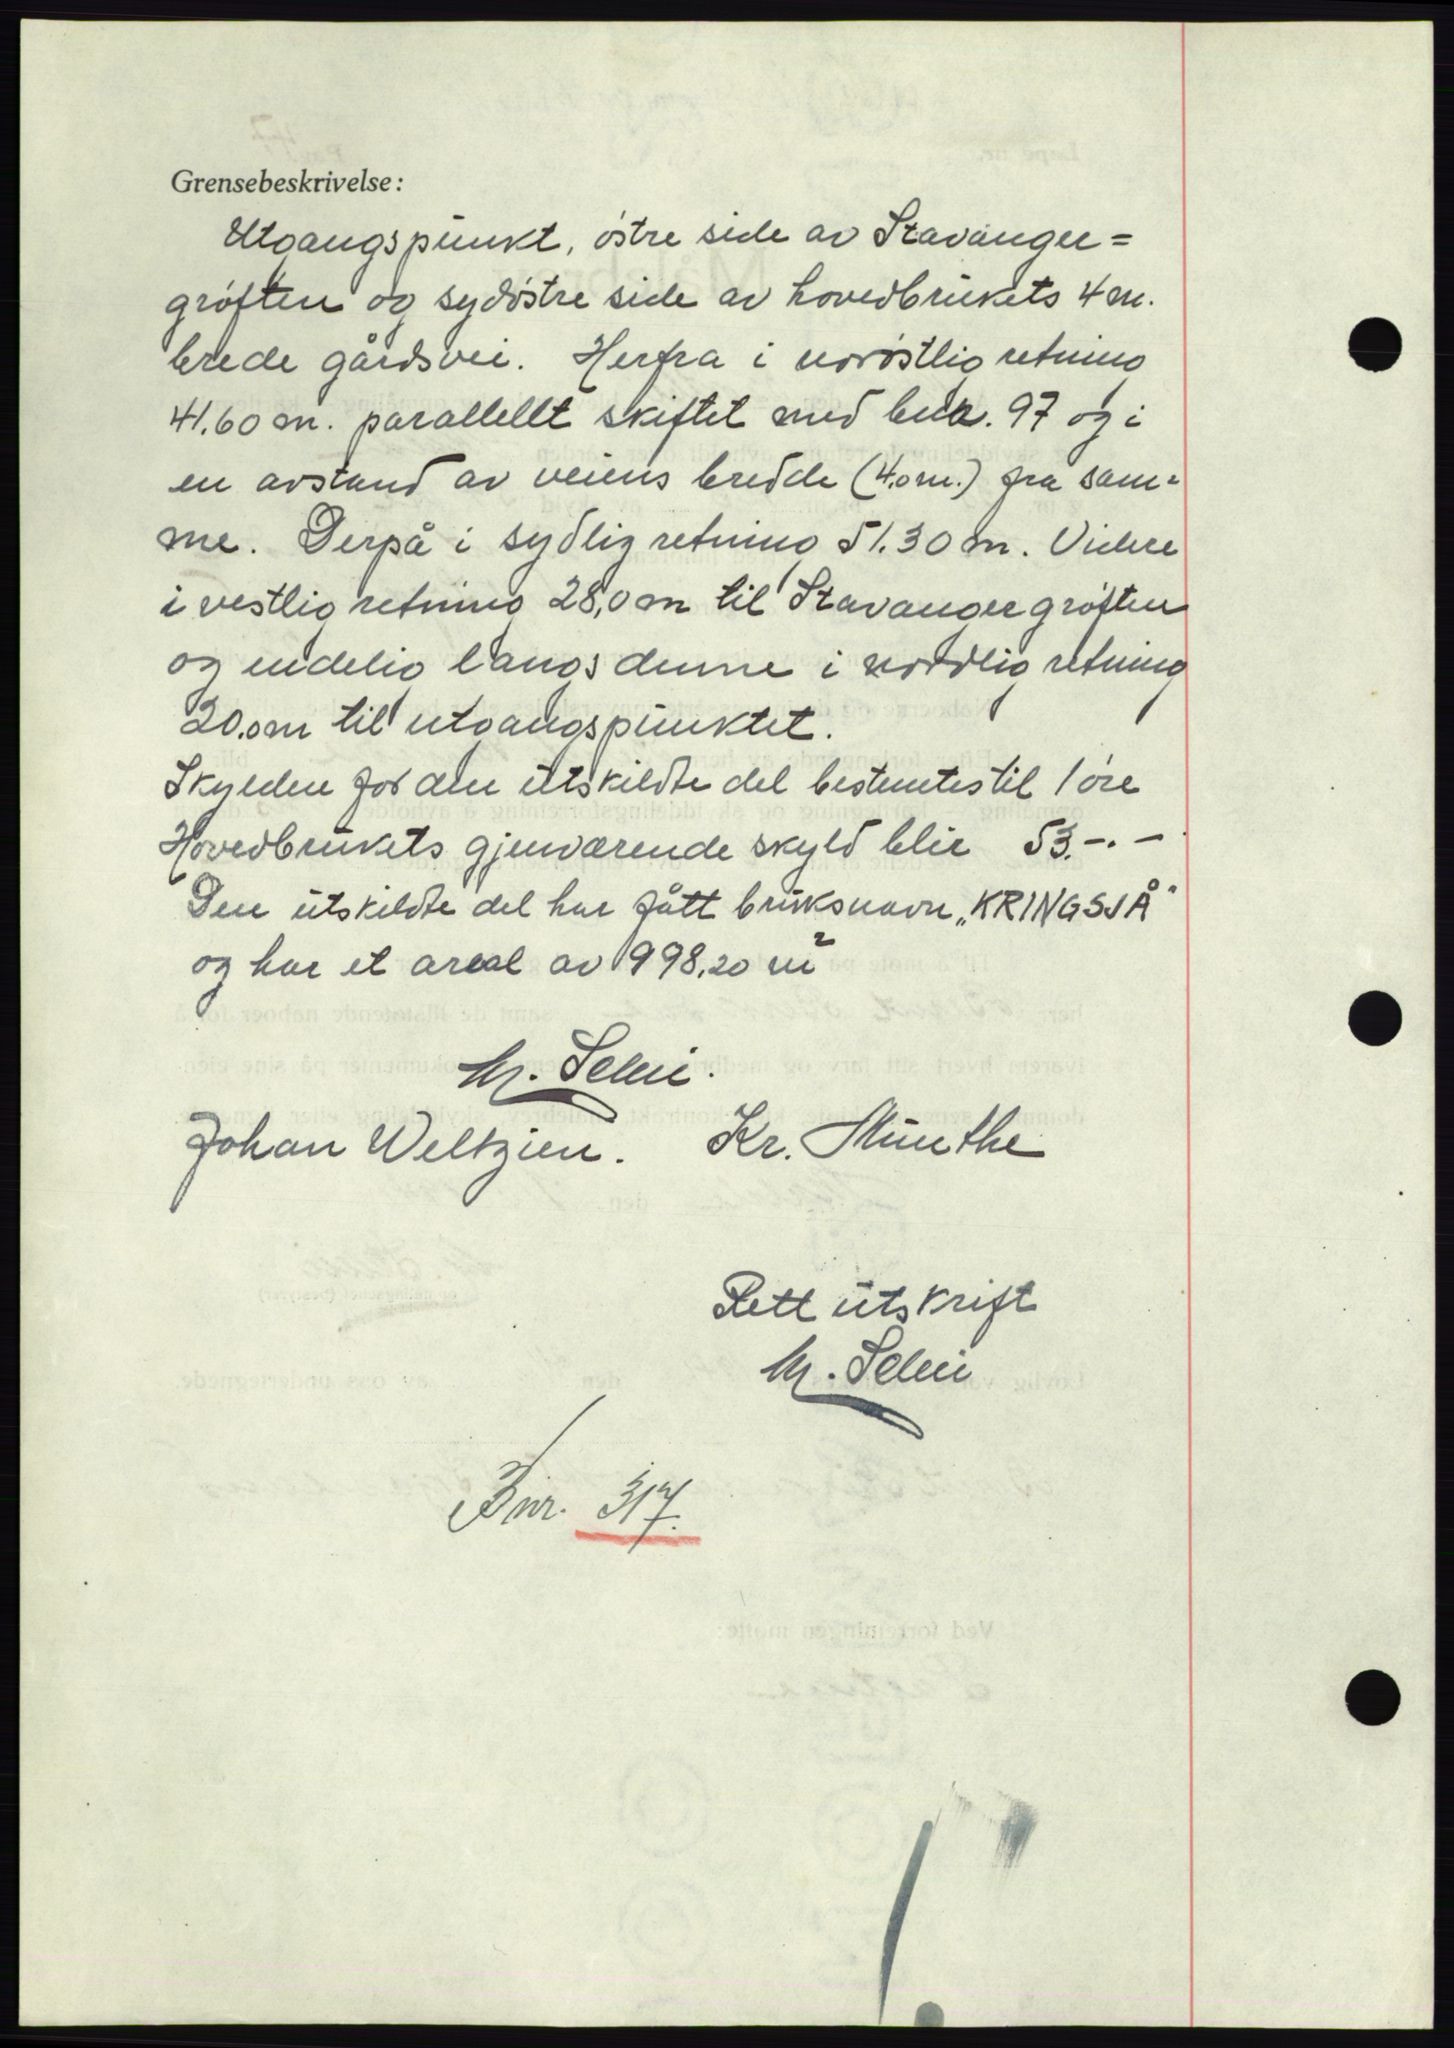 Grensebeskrivelse:
Utgangspunkt, østre side av Stavanger=
grøften og sydøstre side av hovedbrukets 4 m.
brede gårdsvei. Herfra i norøstlig retning
41.60 m. parallellt skiftet med bnr. 97 og i
en avstand av veiens bredde (4.0 m.) fra sam=
me. Derpå i sydlig retning 51.30 m. Videre
i vestlig retning 28,0 m til Stavangergrøften
og endelig langs denne i nordlig retning
20.0 m til utgangspunktet.
Skylden for den utskildte del bestemtes til 1 øre
Hovedbrukets gjenværende skyld blir 53.-.-
Den utskildte del har fått bruksnavn „KRINGSJÅ"
og har et areal av 998.20 m²
Johan Weltzien. Kr. Munthe
Rett utskrift
Bnr. 317.